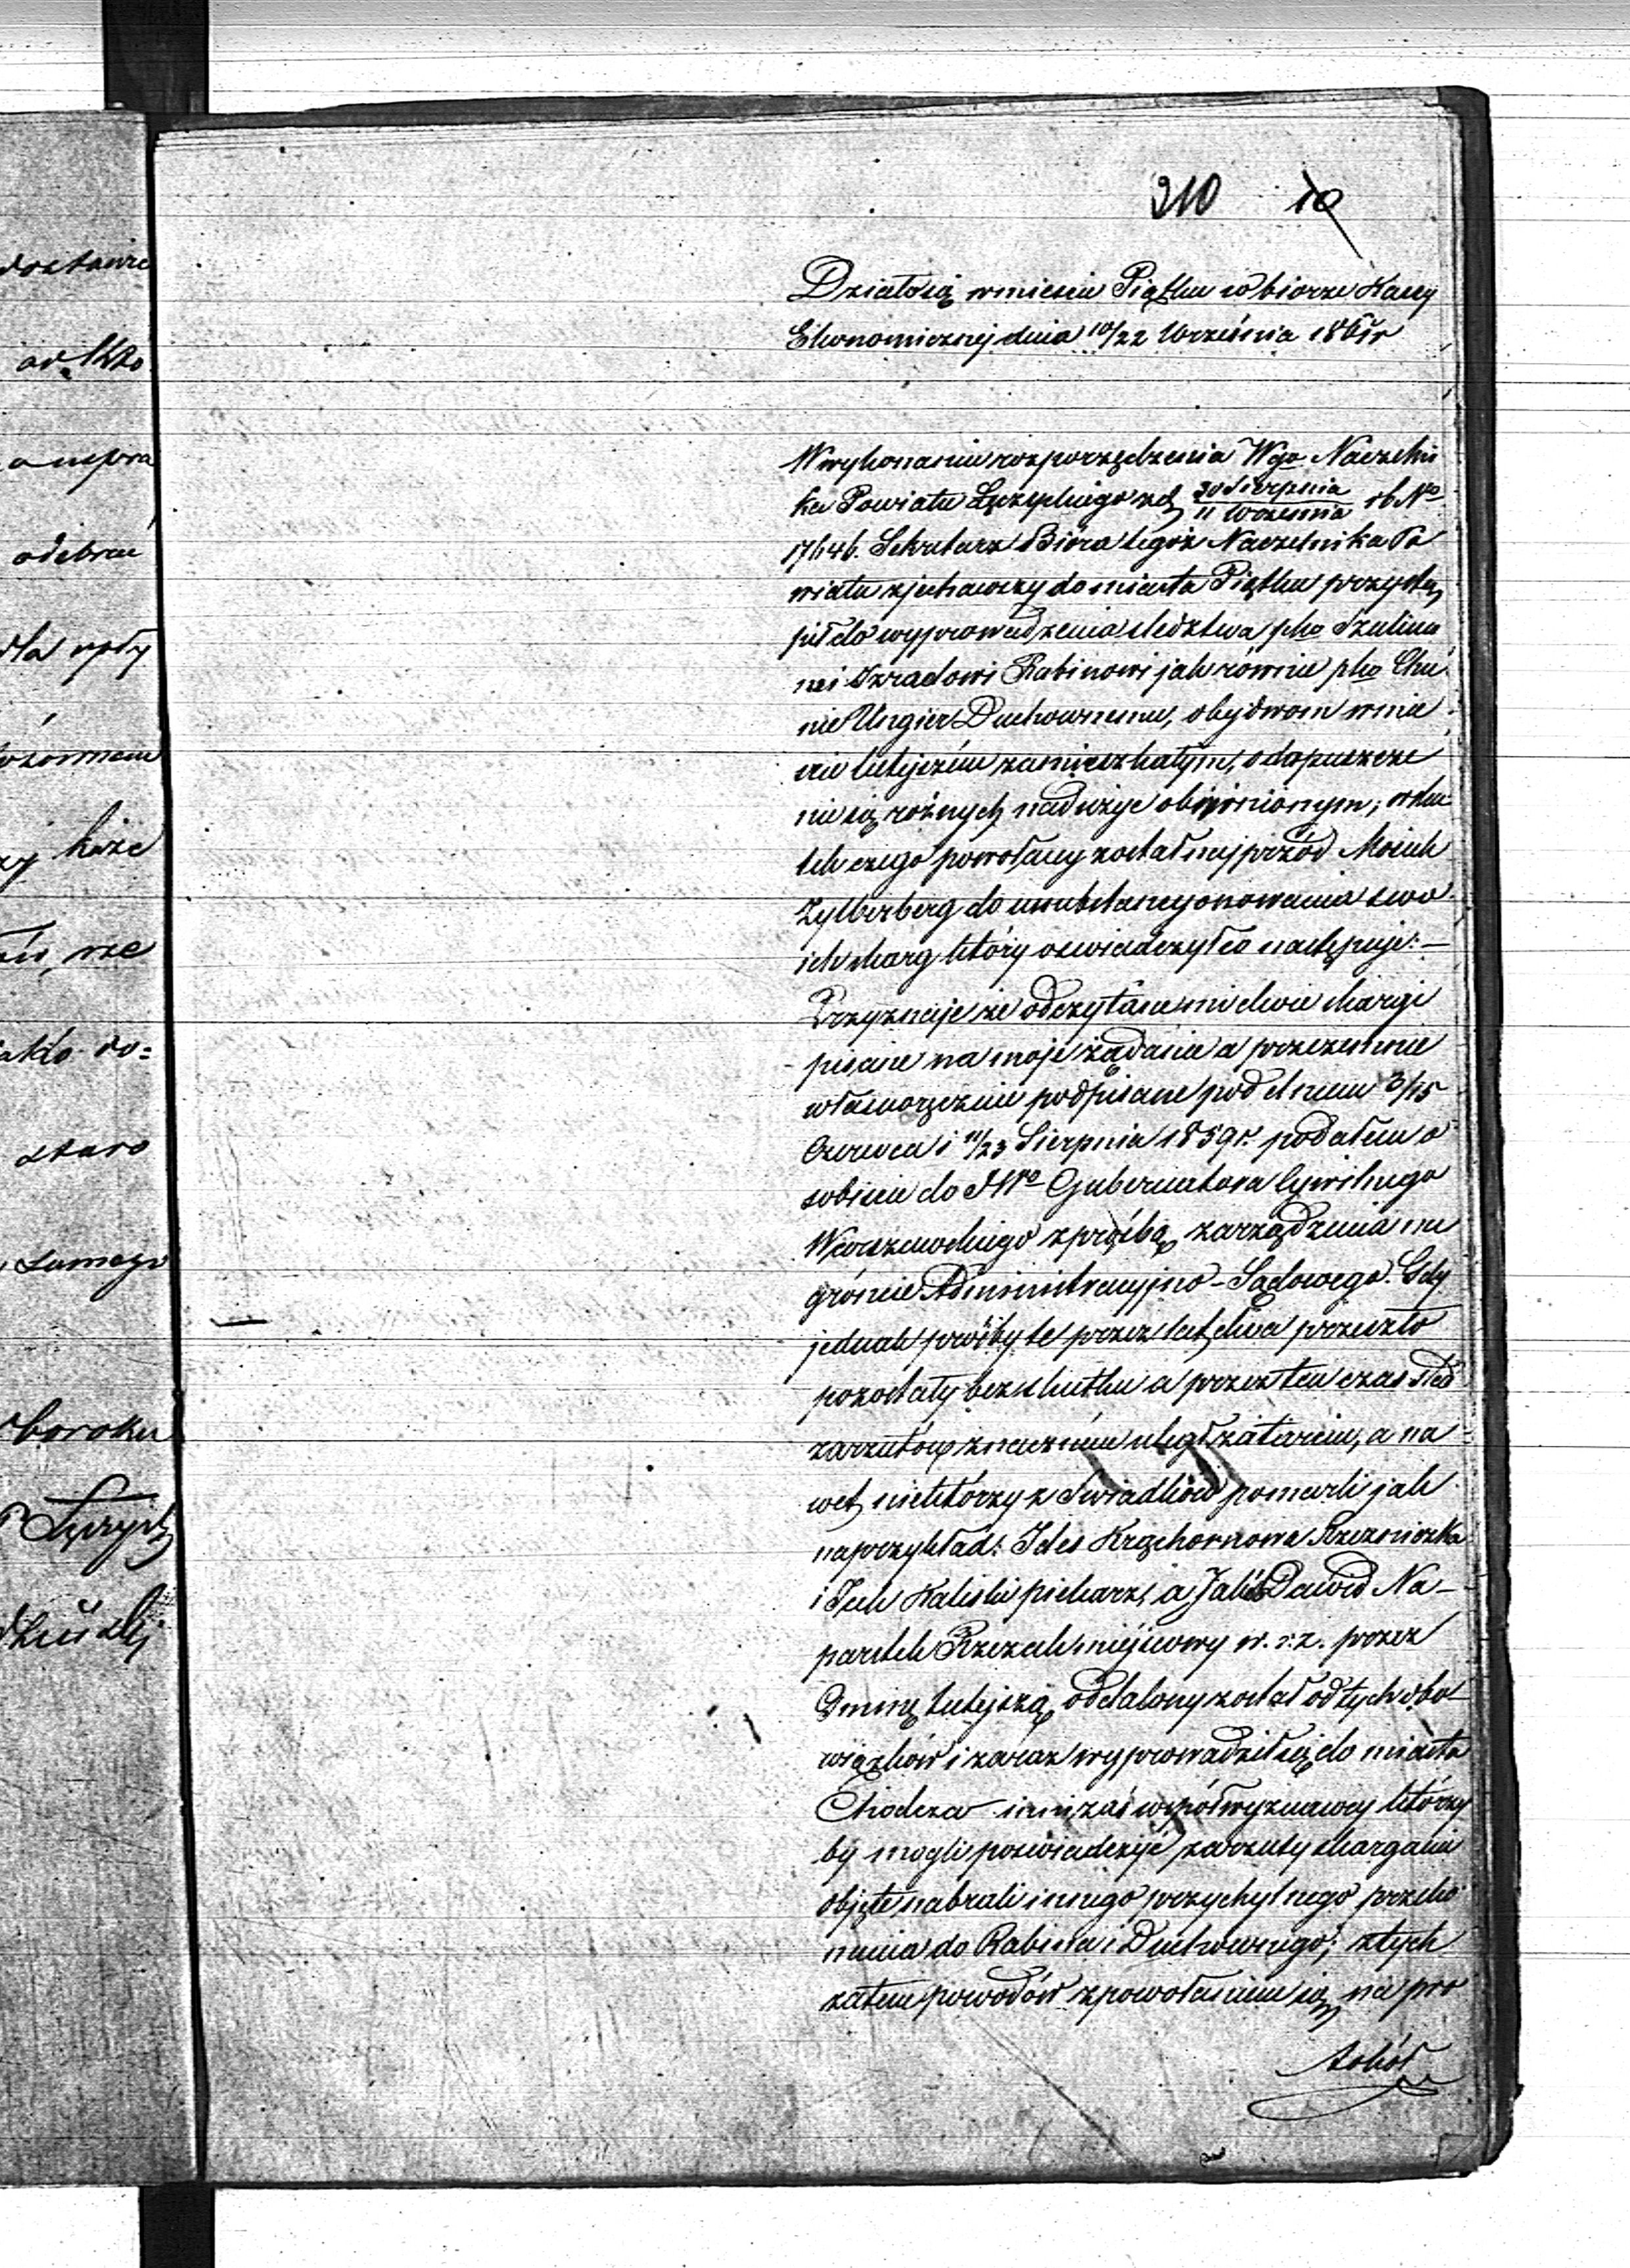 210 10
Działo się w mieście Piątku w biórze Kassy
Ekonomicznej dnia 10/22 Września 1861r
W wykonaniu rozporządzenia Wgo Naczelni
ka Powiatu Łęczyckiego z d. 30 Sierpnia / 11 Września rb No
17646. Sekretarz Bióra tegoż Naczelnika Po
wiatu zjechawszy do miasta Piątku przystą
pił do wyprowadzenia śledztwa pko Szulimo
wi Izraelowi Rabinowi jak równie pko Chu
nie Ungier Duchownemu, obydwom w mie
ście tutejszém zamieszkałym, o dopuszcze
nie się różnych nadużyć obwinionym; w sku
tek czego powołany został najprzód Mosiek
Zylberberg do usubstancyonowania swo
ich skarg który oświadczył co następuje:—
Przyznaję że odczytane mi dwie skargi
pisane na moje żądanie a przezemnie
własnoręcznie podpisane pod dniem 3/15
Czerwca i 11/23 Sierpnia 1859r. podałem o
sobiście do JWo Gubernatora Cywilnego
Warszawskiego z prośbą zarządzenia na
gróncie Administracyjno-Sądowego. Gdy
jednak prośby te przez lat dwa przeszło
pozostały bez skutku a przez ten czas ślad
zarzutów znacznie uległ zatarciu, a na
wet niektórzy z Świadków pomarli jak
naprzykład: Ides Krzchornowa Rzezniczka
i Icek Kaliski piekarz, a Jakób Dawid Na-
parstek Rzezak miejscowy w. r. z. przez
Gminę tutejszą oddalony został od tych obo-
wiązków i zaraz wyprowadził się do miasta
Chodcza inni zaś współwyznawcy którzy
by mogli poświadczyć zarzuty skargami
objęte nabrali innego przychylnego przeko
nania do Rabina i Duchownego; z tych
zatem powodów z powołaniem się na pro
tokół
dostawie
odebrał
dla
hóze
jako do=
staro
samego
oboroku
Łęczyck